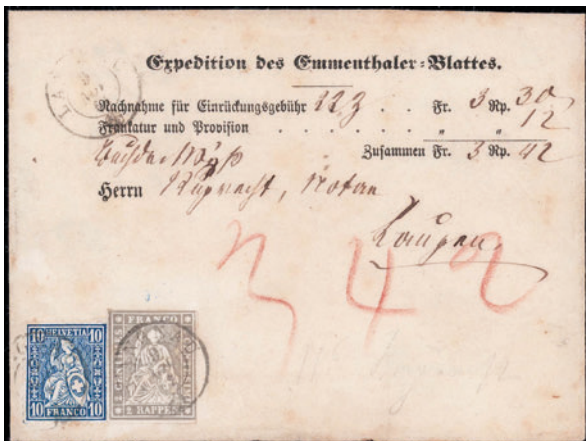 Expedition des Emmenthaler-Blattes.
Nachnahme für Einrückungsgebühr 123 . . Fr. 3 Rp. 30
Frankatur und Provision . . . . . . . " " 12
Zusammen Fr. 3 Rp. 42
Herrn Ruprecht, Notar
Laupen.
3 42
10 HELVETIA 10
10 FRANCO 10
FRANCO
2 RAPPEN